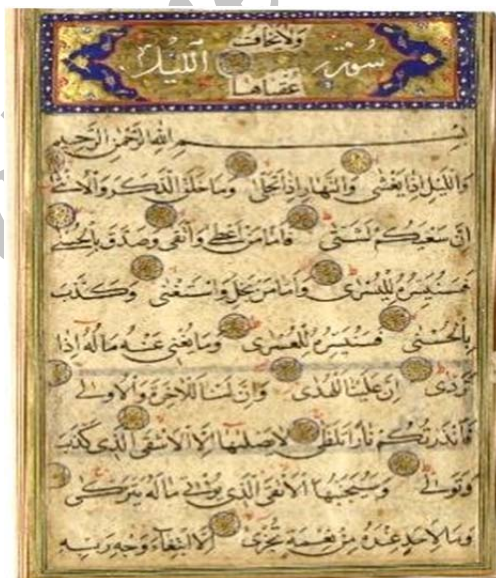 ولا يخاف
سورة الليل
عقباها
بسم الله الرحمن الرحيم
والليل اذا يغشى والنهار اذا تجلى وما خلق الذكر والانثى
ان سعيكم لشتى فاما من اعطى واتقى وصدق بالحسنى
فسنيسره لليسرى واما من بخل واستغنى وكذب
بالحسنى فسنيسره للعسرى وما يغنى عنه ماله اذا
تردى ان علينا للهدى وان لنا للآخرة والاولى
فانذرتكم نارا تلظى لا يصليها الا الاشقى الذى كذب
وتولى وسيجنبها الاتقى الذى يؤتى ماله يتزكى
وما لاحد عنده من نعمة تجزى الا ابتغاء وجه ربه